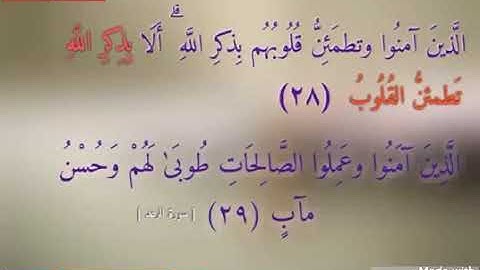 الَّذِينَ آمَنُوا وتَطمَئِنُّ قُلُوبُهُم بِذكرِ اللَّهِ ۗ أَلَا بِذِكرِ اللَّهِ
تَطمئنُّ القُلُوبُ (٢٨)
الَّذِينَ آمَنُوا وعَمِلُوا الصَّالِحَاتِ طُوبَىٰ لَهُمْ وَحُسْنُ
مآبٍ (٢٩) [سورة الرعد]
Made with